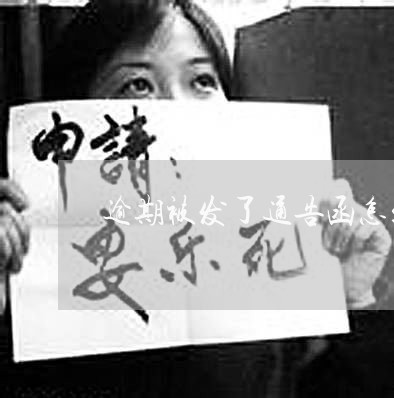 申請：
逾期被发了通告函怎
安乐死